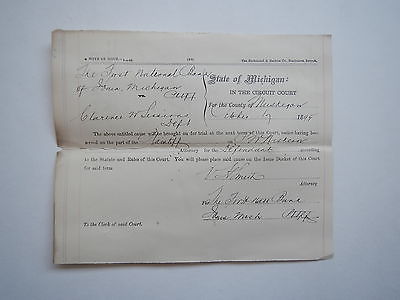 NOTE OF ISSUE.
The Richmond & Backus Co., Stationers, Detroit.
The First National Bank
of Ionia Michigan
vs
Pltff
Clarence W Sessions
Deft
State of Michigan:
IN THE CIRCUIT COURT
For the County of Muskegon
1895
The above entitled cause will be brought on for trial at the next term of this Court, notice having been
served on the part of the Plaintiff
Attorney for the Defendants according
to the Statute and Rules of this Court. You will please place said cause on the Issue Docket of this Court for
said term
Smith
Attorney
The First Natl Bank
Ionia Mich Pltff
To the Clerk of said Court.